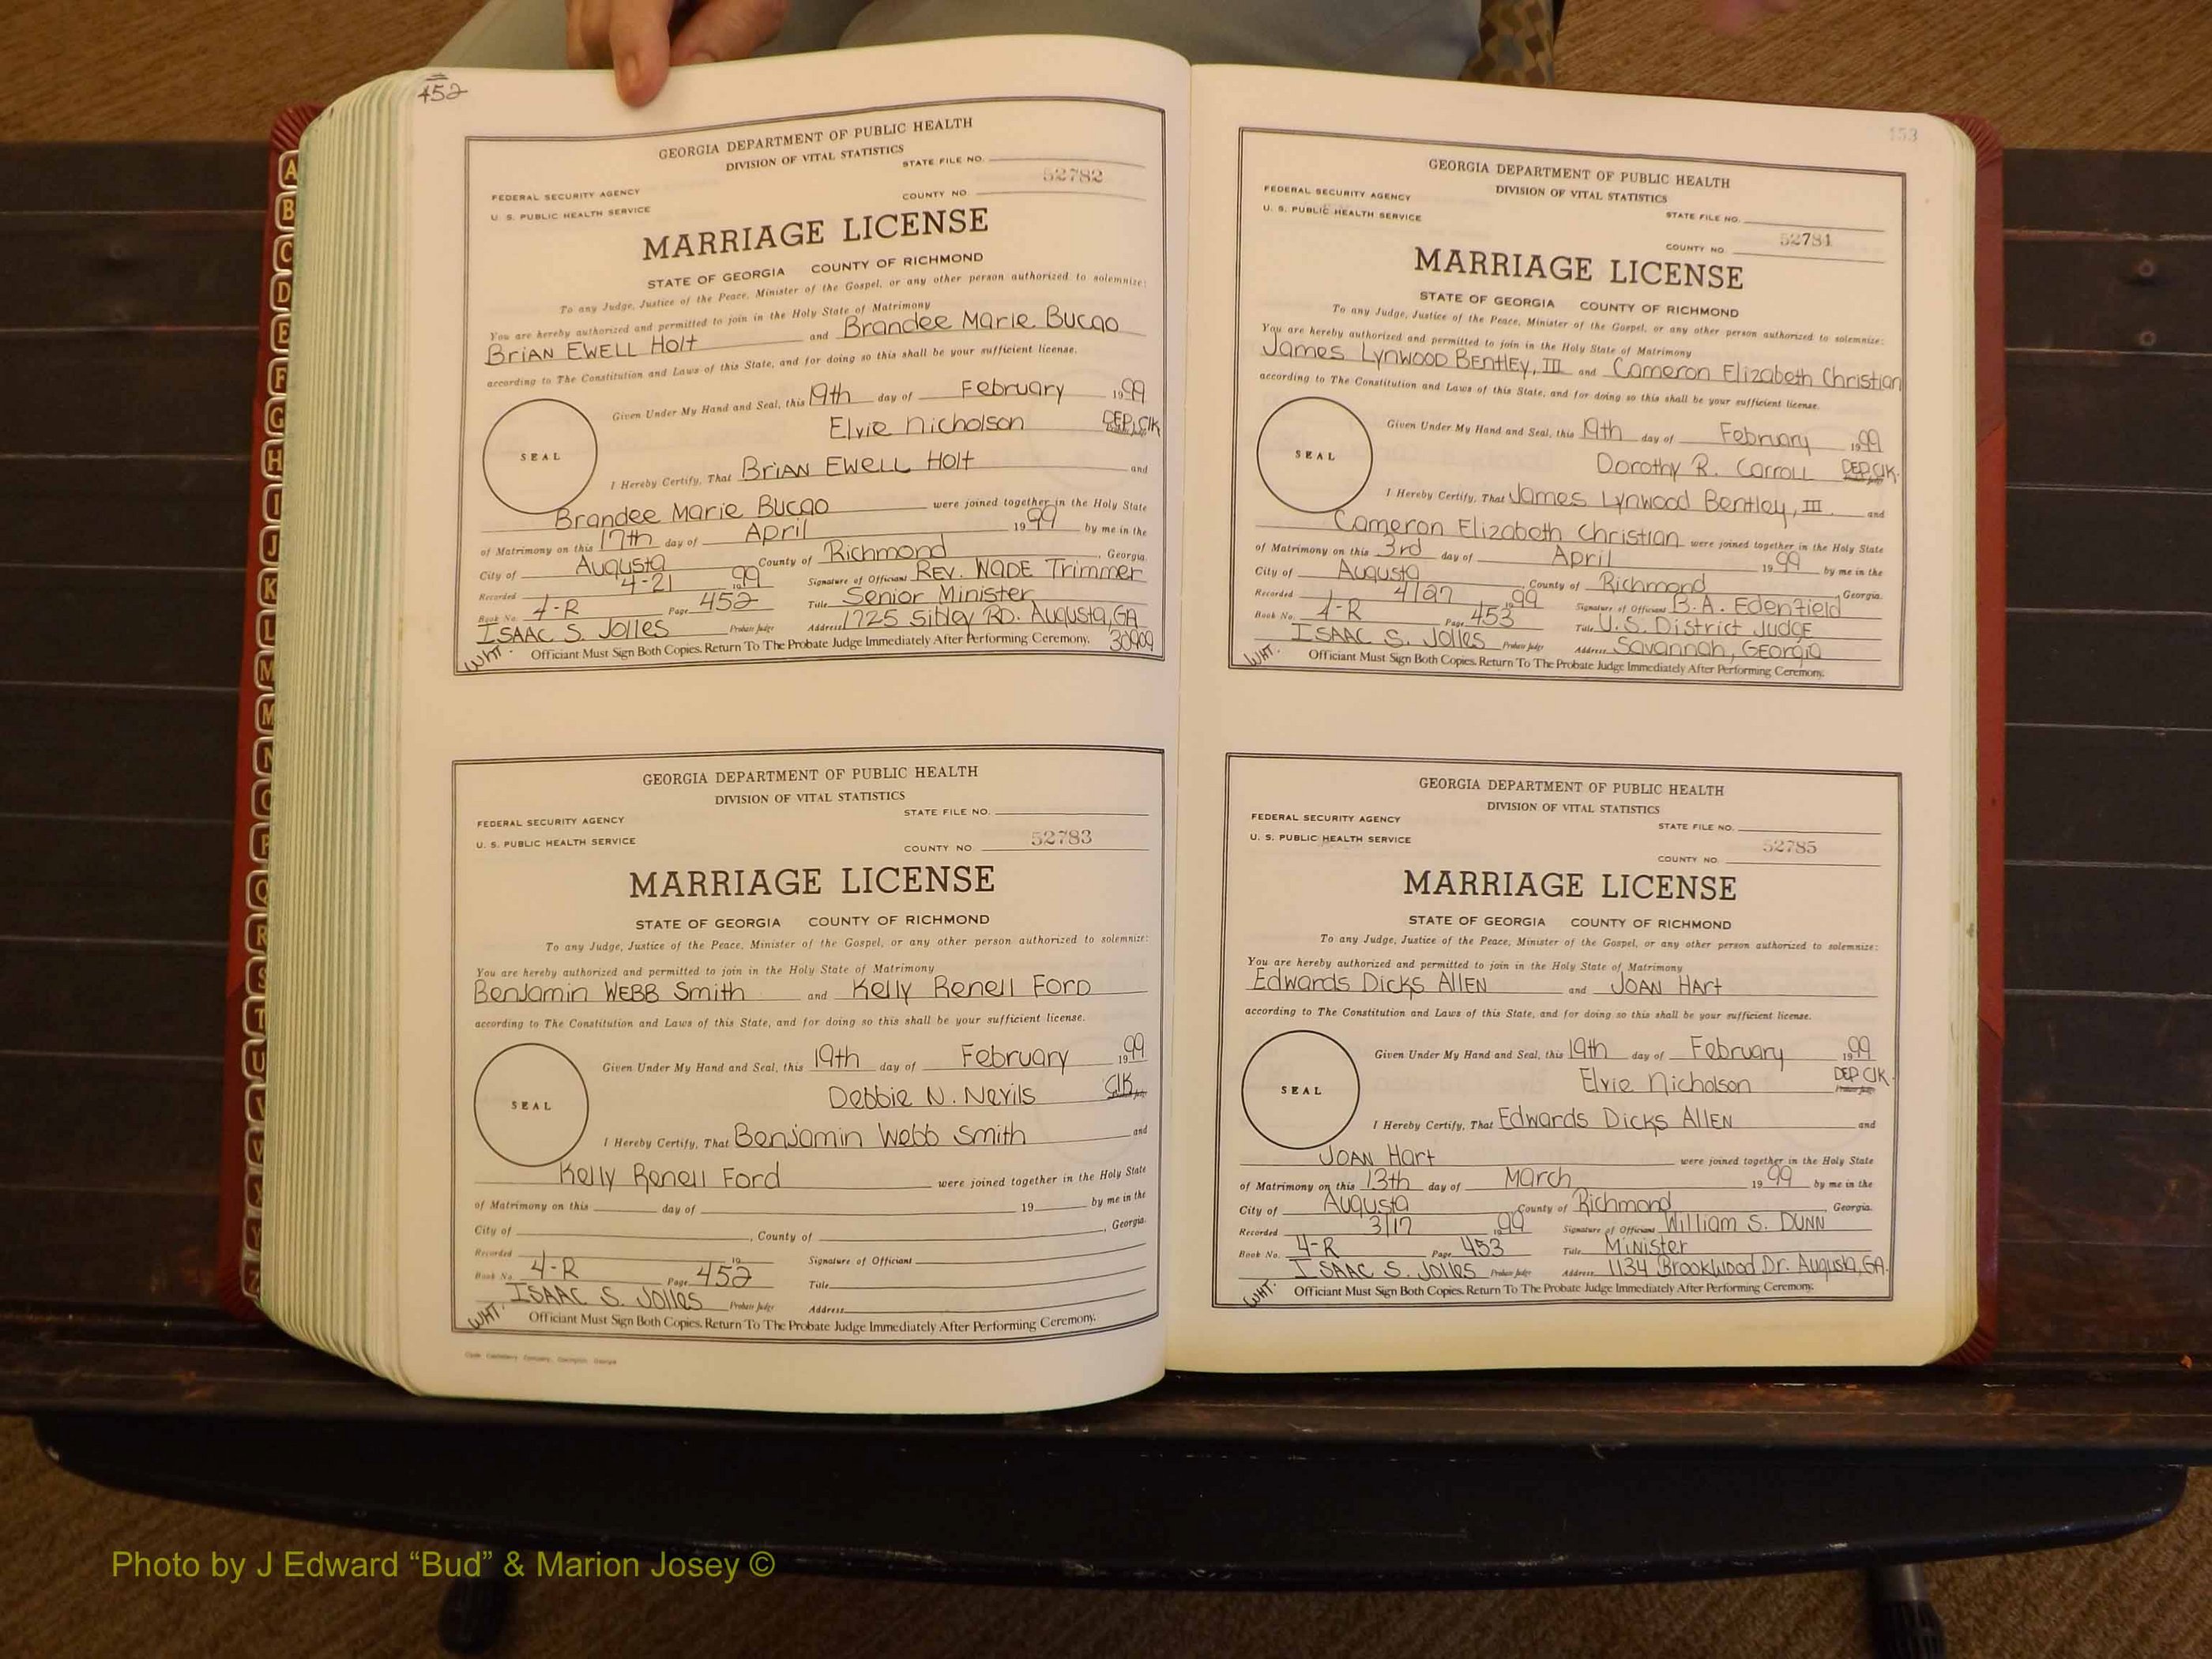 452
GEORGIA DEPARTMENT OF PUBLIC HEALTH
DIVISION OF VITAL STATISTICS
STATE FILE NO.
FEDERAL SECURITY AGENCY
52782
U. S. PUBLIC HEALTH SERVICE
COUNTY NO.
MARRIAGE LICENSE
STATE OF GEORGIA COUNTY OF RICHMOND
To any Judge, Justice of the Peace, Minister of the Gospel, or any other person authorized to solemnize:
You are hereby authorized and permitted to join in the Holy State of Matrimony
BriAN EWELL Holt and Brandee Marie Bucao
according to The Constitution and Laws of this State, and for doing so this shall be your sufficient license.
Given Under My Hand and Seal, this 19th day of February 1999
Elvie Nicholson DEP. Clk
SEAL
I Hereby Certify, That BriAN EWELL Holt and
Brandee Marie Bucao were joined together in the Holy State
of Matrimony on this 17th day of April 1999 by me in the
City of Augusta County of Richmond, Georgia.
Recorded 4-21 1999 Signature of Officiant REV. WADE Trimmer
Book No. 4-R Page 452 Title Senior Minister
ISAAC S. Jolles Probate Judge Address 1725 Sibley RD. Augusta, GA
WHT. Officiant Must Sign Both Copies. Return To The Probate Judge Immediately After Performing Ceremony. 30909
GEORGIA DEPARTMENT OF PUBLIC HEALTH
DIVISION OF VITAL STATISTICS
STATE FILE NO.
FEDERAL SECURITY AGENCY
52783
U. S. PUBLIC HEALTH SERVICE
COUNTY NO.
MARRIAGE LICENSE
STATE OF GEORGIA COUNTY OF RICHMOND
To any Judge, Justice of the Peace, Minister of the Gospel, or any other person authorized to solemnize:
You are hereby authorized and permitted to join in the Holy State of Matrimony
Benjamin WEBB Smith and Kelly Renell Ford
according to The Constitution and Laws of this State, and for doing so this shall be your sufficient license.
Given Under My Hand and Seal, this 19th day of February 1999
Debbie N. Nevils Clk.
SEAL
I Hereby Certify, That Benjamin Webb Smith and
Kelly Renell Ford were joined together in the Holy State
of Matrimony on this day of 19 by me in the
City of , County of , Georgia.
Recorded 19 Signature of Officiant
Book No. 4-R Page 452 Title
ISAAC S. Jolles Probate Judge Address
WHT. Officiant Must Sign Both Copies. Return To The Probate Judge Immediately After Performing Ceremony.
453
GEORGIA DEPARTMENT OF PUBLIC HEALTH
DIVISION OF VITAL STATISTICS
FEDERAL SECURITY AGENCY
STATE FILE NO.
U. S. PUBLIC HEALTH SERVICE
52784
COUNTY NO.
MARRIAGE LICENSE
STATE OF GEORGIA COUNTY OF RICHMOND
To any Judge, Justice of the Peace, Minister of the Gospel, or any other person authorized to solemnize:
You are hereby authorized and permitted to join in the Holy State of Matrimony
James Lynwood Bentley, III and Cameron Elizabeth Christian
according to The Constitution and Laws of this State, and for doing so this shall be your sufficient license.
Given Under My Hand and Seal, this 19th day of February 1999
Dorothy R. Carroll DEP. Clk.
SEAL
I Hereby Certify, That James Lynwood Bentley, III and
Cameron Elizabeth Christian were joined together in the Holy State
of Matrimony on this 3rd day of April 1999 by me in the
City of Augusta, County of Richmond, Georgia.
Recorded 4/27 1999 Signature of Officiant B.A. Edenfield
Book No. 4-R Page 453 Title U.S. District Judge
ISAAC S. Jolles Probate Judge Address Savannah, Georgia
WHT. Officiant Must Sign Both Copies. Return To The Probate Judge Immediately After Performing Ceremony.
GEORGIA DEPARTMENT OF PUBLIC HEALTH
DIVISION OF VITAL STATISTICS
FEDERAL SECURITY AGENCY
STATE FILE NO.
U. S. PUBLIC HEALTH SERVICE
52785
COUNTY NO.
MARRIAGE LICENSE
STATE OF GEORGIA COUNTY OF RICHMOND
To any Judge, Justice of the Peace, Minister of the Gospel, or any other person authorized to solemnize:
You are hereby authorized and permitted to join in the Holy State of Matrimony
Edwards Dicks Allen and JOAN HArt
according to The Constitution and Laws of this State, and for doing so this shall be your sufficient license.
Given Under My Hand and Seal, this 19th day of February 1999
Elvie Nicholson DEP Clk.
SEAL
I Hereby Certify, That Edwards Dicks Allen and
JOAN Hart were joined together in the Holy State
of Matrimony on this 13th day of March 1999 by me in the
City of Augusta, County of Richmond, Georgia.
Recorded 3/17 1999 Signature of Officiant William S. DUNN
Book No. 4-R Page 453 Title Minister
ISAAC S. Jolles Probate Judge Address 1134 Brookwood Dr. Augusta, GA.
WHT. Officiant Must Sign Both Copies. Return To The Probate Judge Immediately After Performing Ceremony.
A
B
C
D
E
F
G
H
I
J
K
L
M
M
N
O
P
Q
R
S
T
U
V
W
X
Y
Z
Photo by J Edward “Bud” & Marion Josey ©